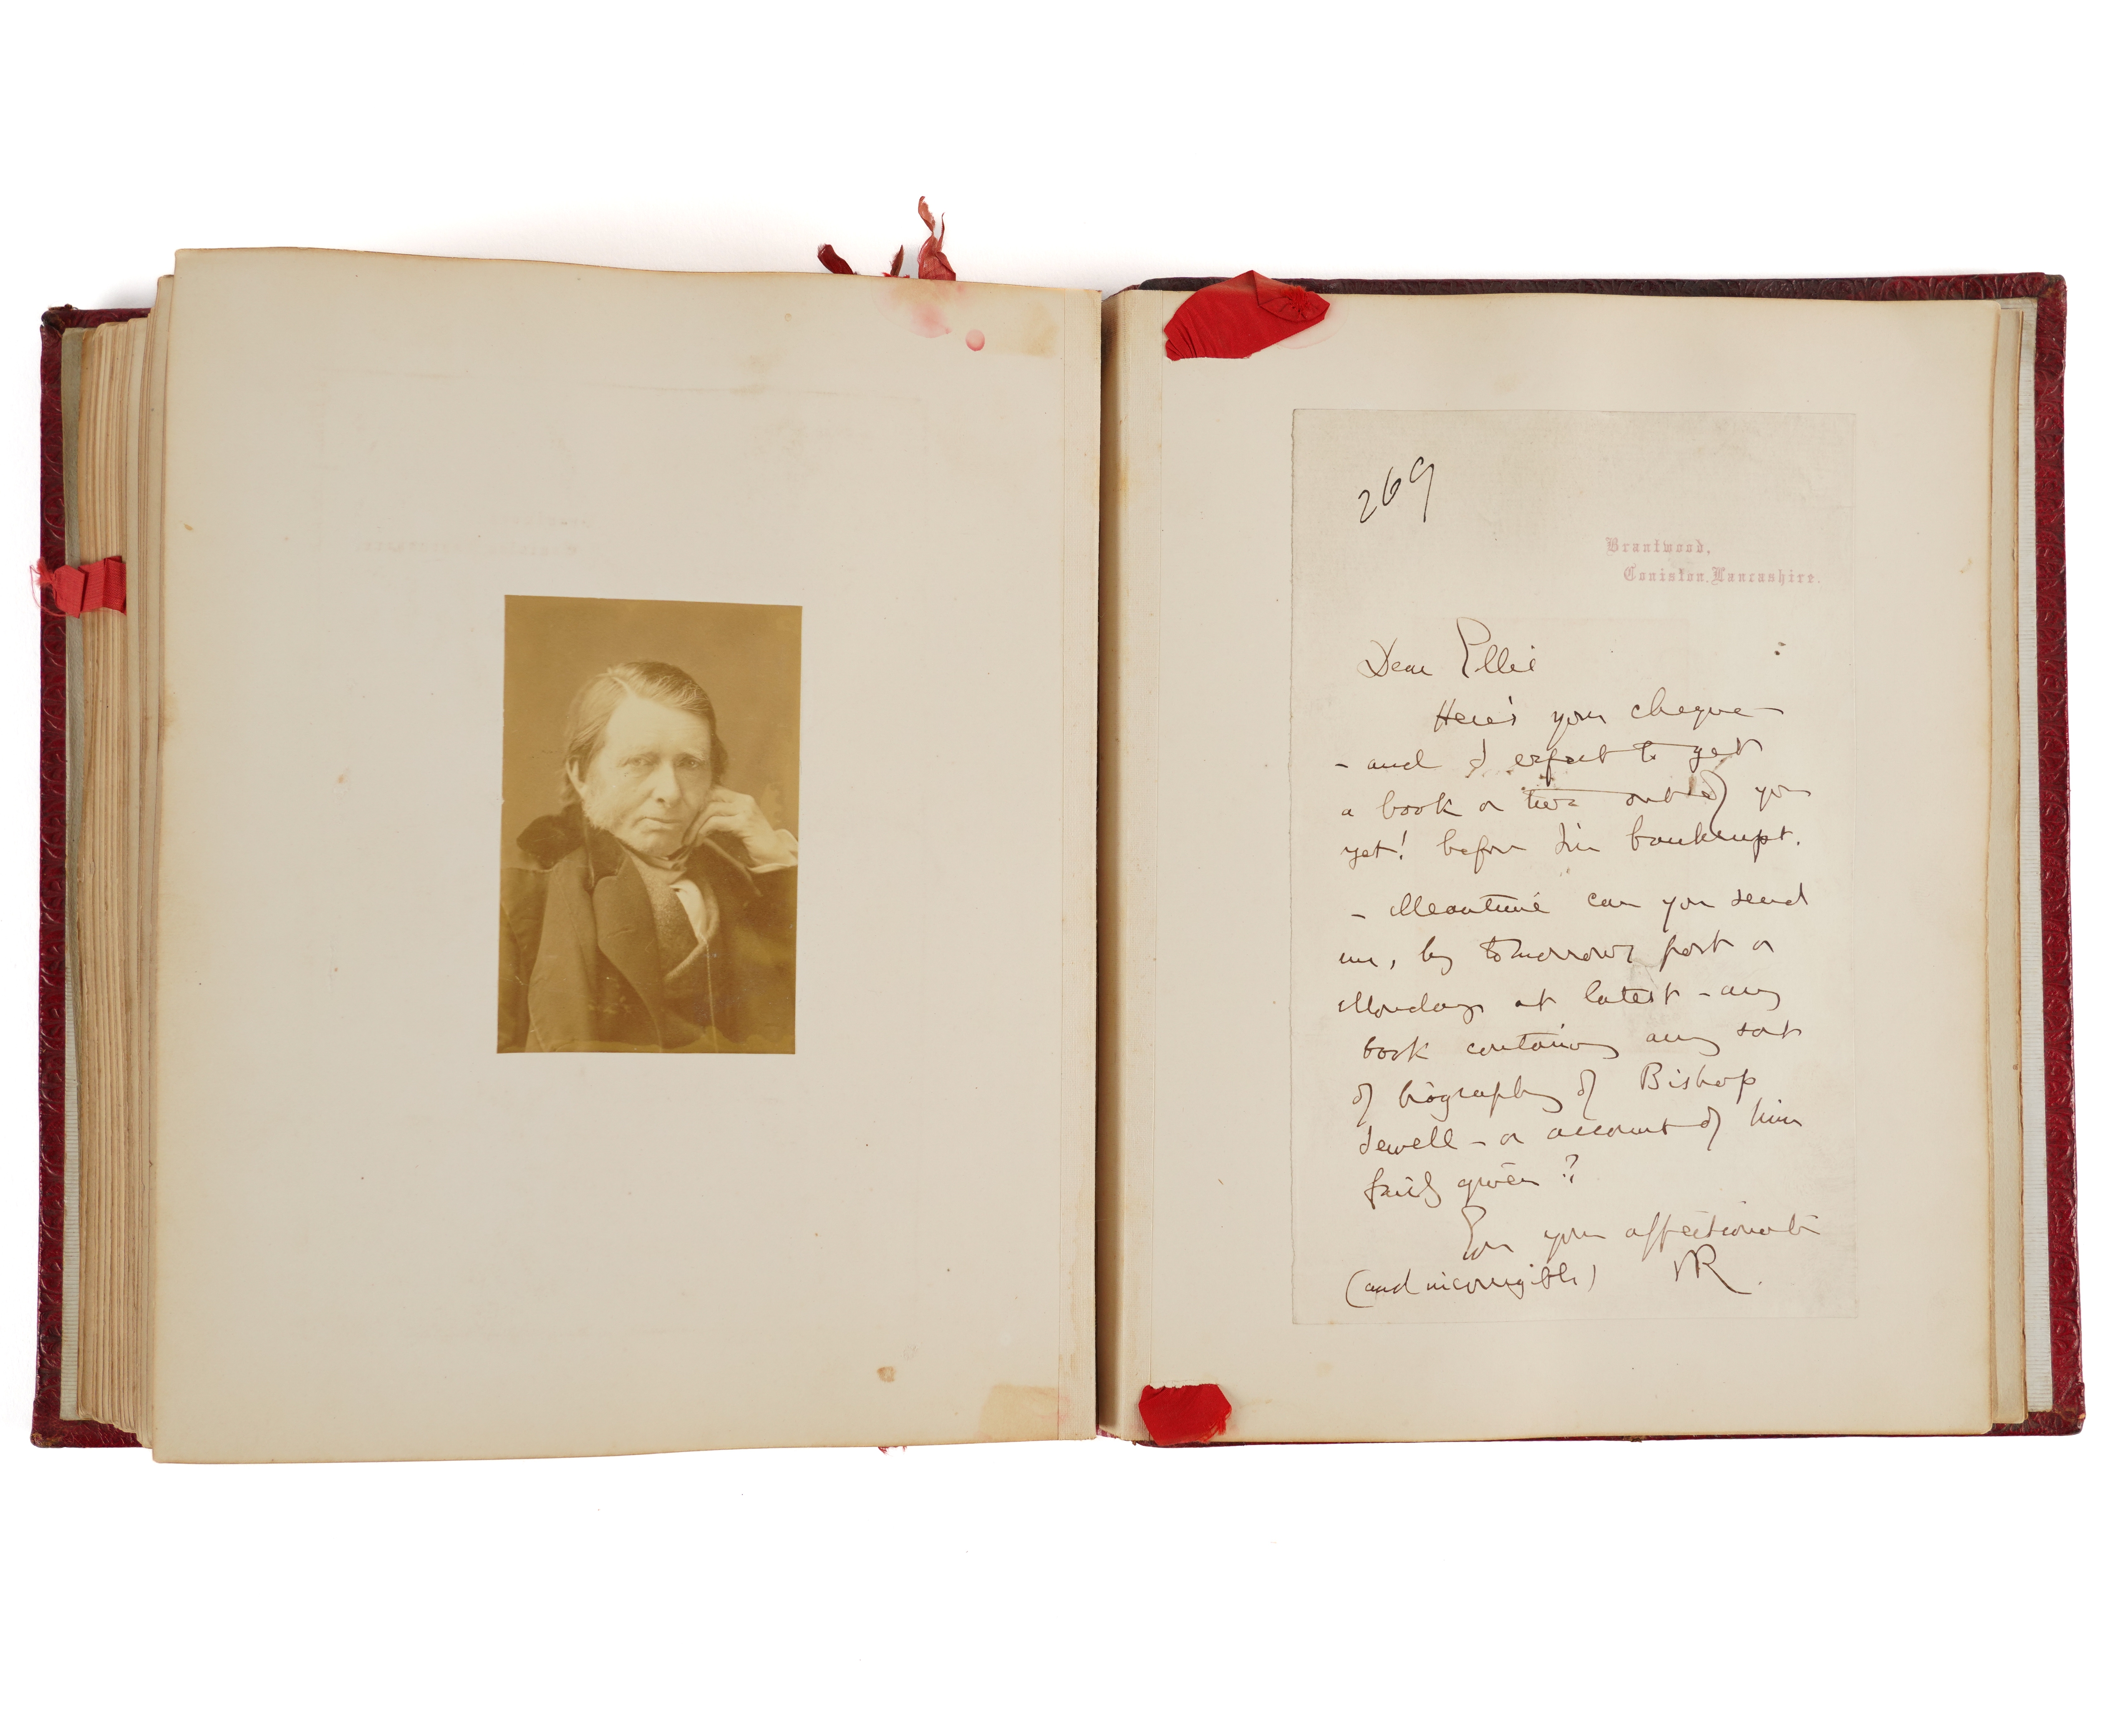 269
Brantwood,
Coniston, Lancashire.
Dear Ellis
Here's your cheque –
– and I expect to get
a book or two out of you
yet! before I'm bankrupt.
– Meantime can you send
me, by tomorrows post or
Monday at latest – any
book containing any sort
of biography of Bishop
Jewell – or account of him
fairly given?
Ever your affectionate
(and incorrigible) JR.